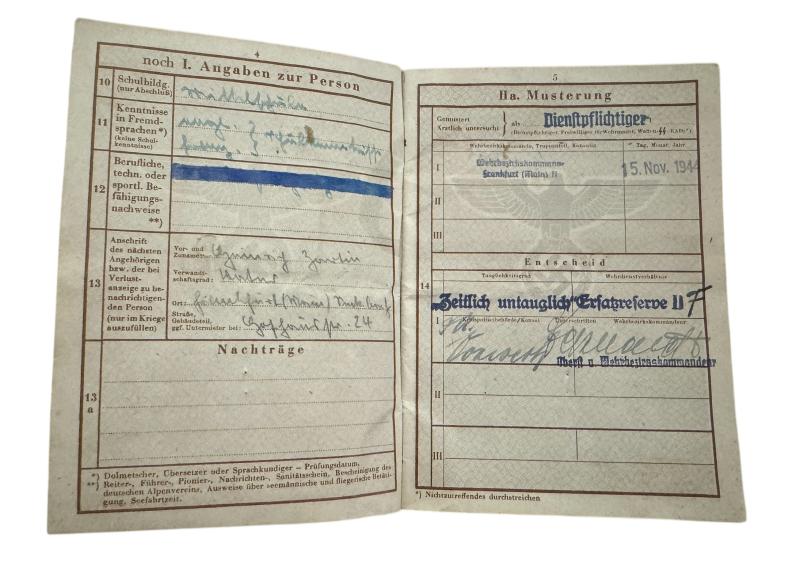 4
noch I. Angaben zur Person
10 Schulbildg. (nur Abschluß)
Mittelschule
11 Kenntnisse in Fremdsprachen*) (keine Schulkenntnisse)
engl.
franz.
12 Berufliche, techn. oder sportl. Befähigungsnachweise **)
13 Anschrift des nächsten Angehörigen bzw. der bei Verlustanzeige zu benachrichtigenden Person (nur im Kriege auszufüllen)
Vor- und Zuname: Heinrich
Verwandtschaftsgrad: Vater
Ort:
Straße, Gebäudeteil, ggf. Untermieter bei: 24
Nachträge
13 a
*) Dolmetscher, Übersetzer oder Sprachkundiger – Prüfungsdatum.
**) Reiter-, Führer-, Pionier-, Nachrichten-, Sanitätsschein, Bescheinigung des
deutschen Alpenvereins, Ausweise über seemännische und fliegerische Betäti-
gung, Seefahrtzeit.
5
IIa. Musterung
Gemustert
Ärztlich untersucht
als Dienstpflichtiger
(Dienstpflichtiger, Freiwilliger für Wehrmacht, Waffen-SS, RAD*)
Tag, Monat, Jahr
I Wehrbezirkskommando
Frankfurt (Main) II
15. Nov. 1944
II
III
Entscheid
14
Tauglichkeitsgrad Wehrdienstverhältnis
"Zeitlich untauglich" Ersatzreserve II F
I Unterschriften Wehrbezirkskommandeur
Oberst u. Wehrbezirkskommandeur
II
III
*) Nichtzutreffendes durchstreichen